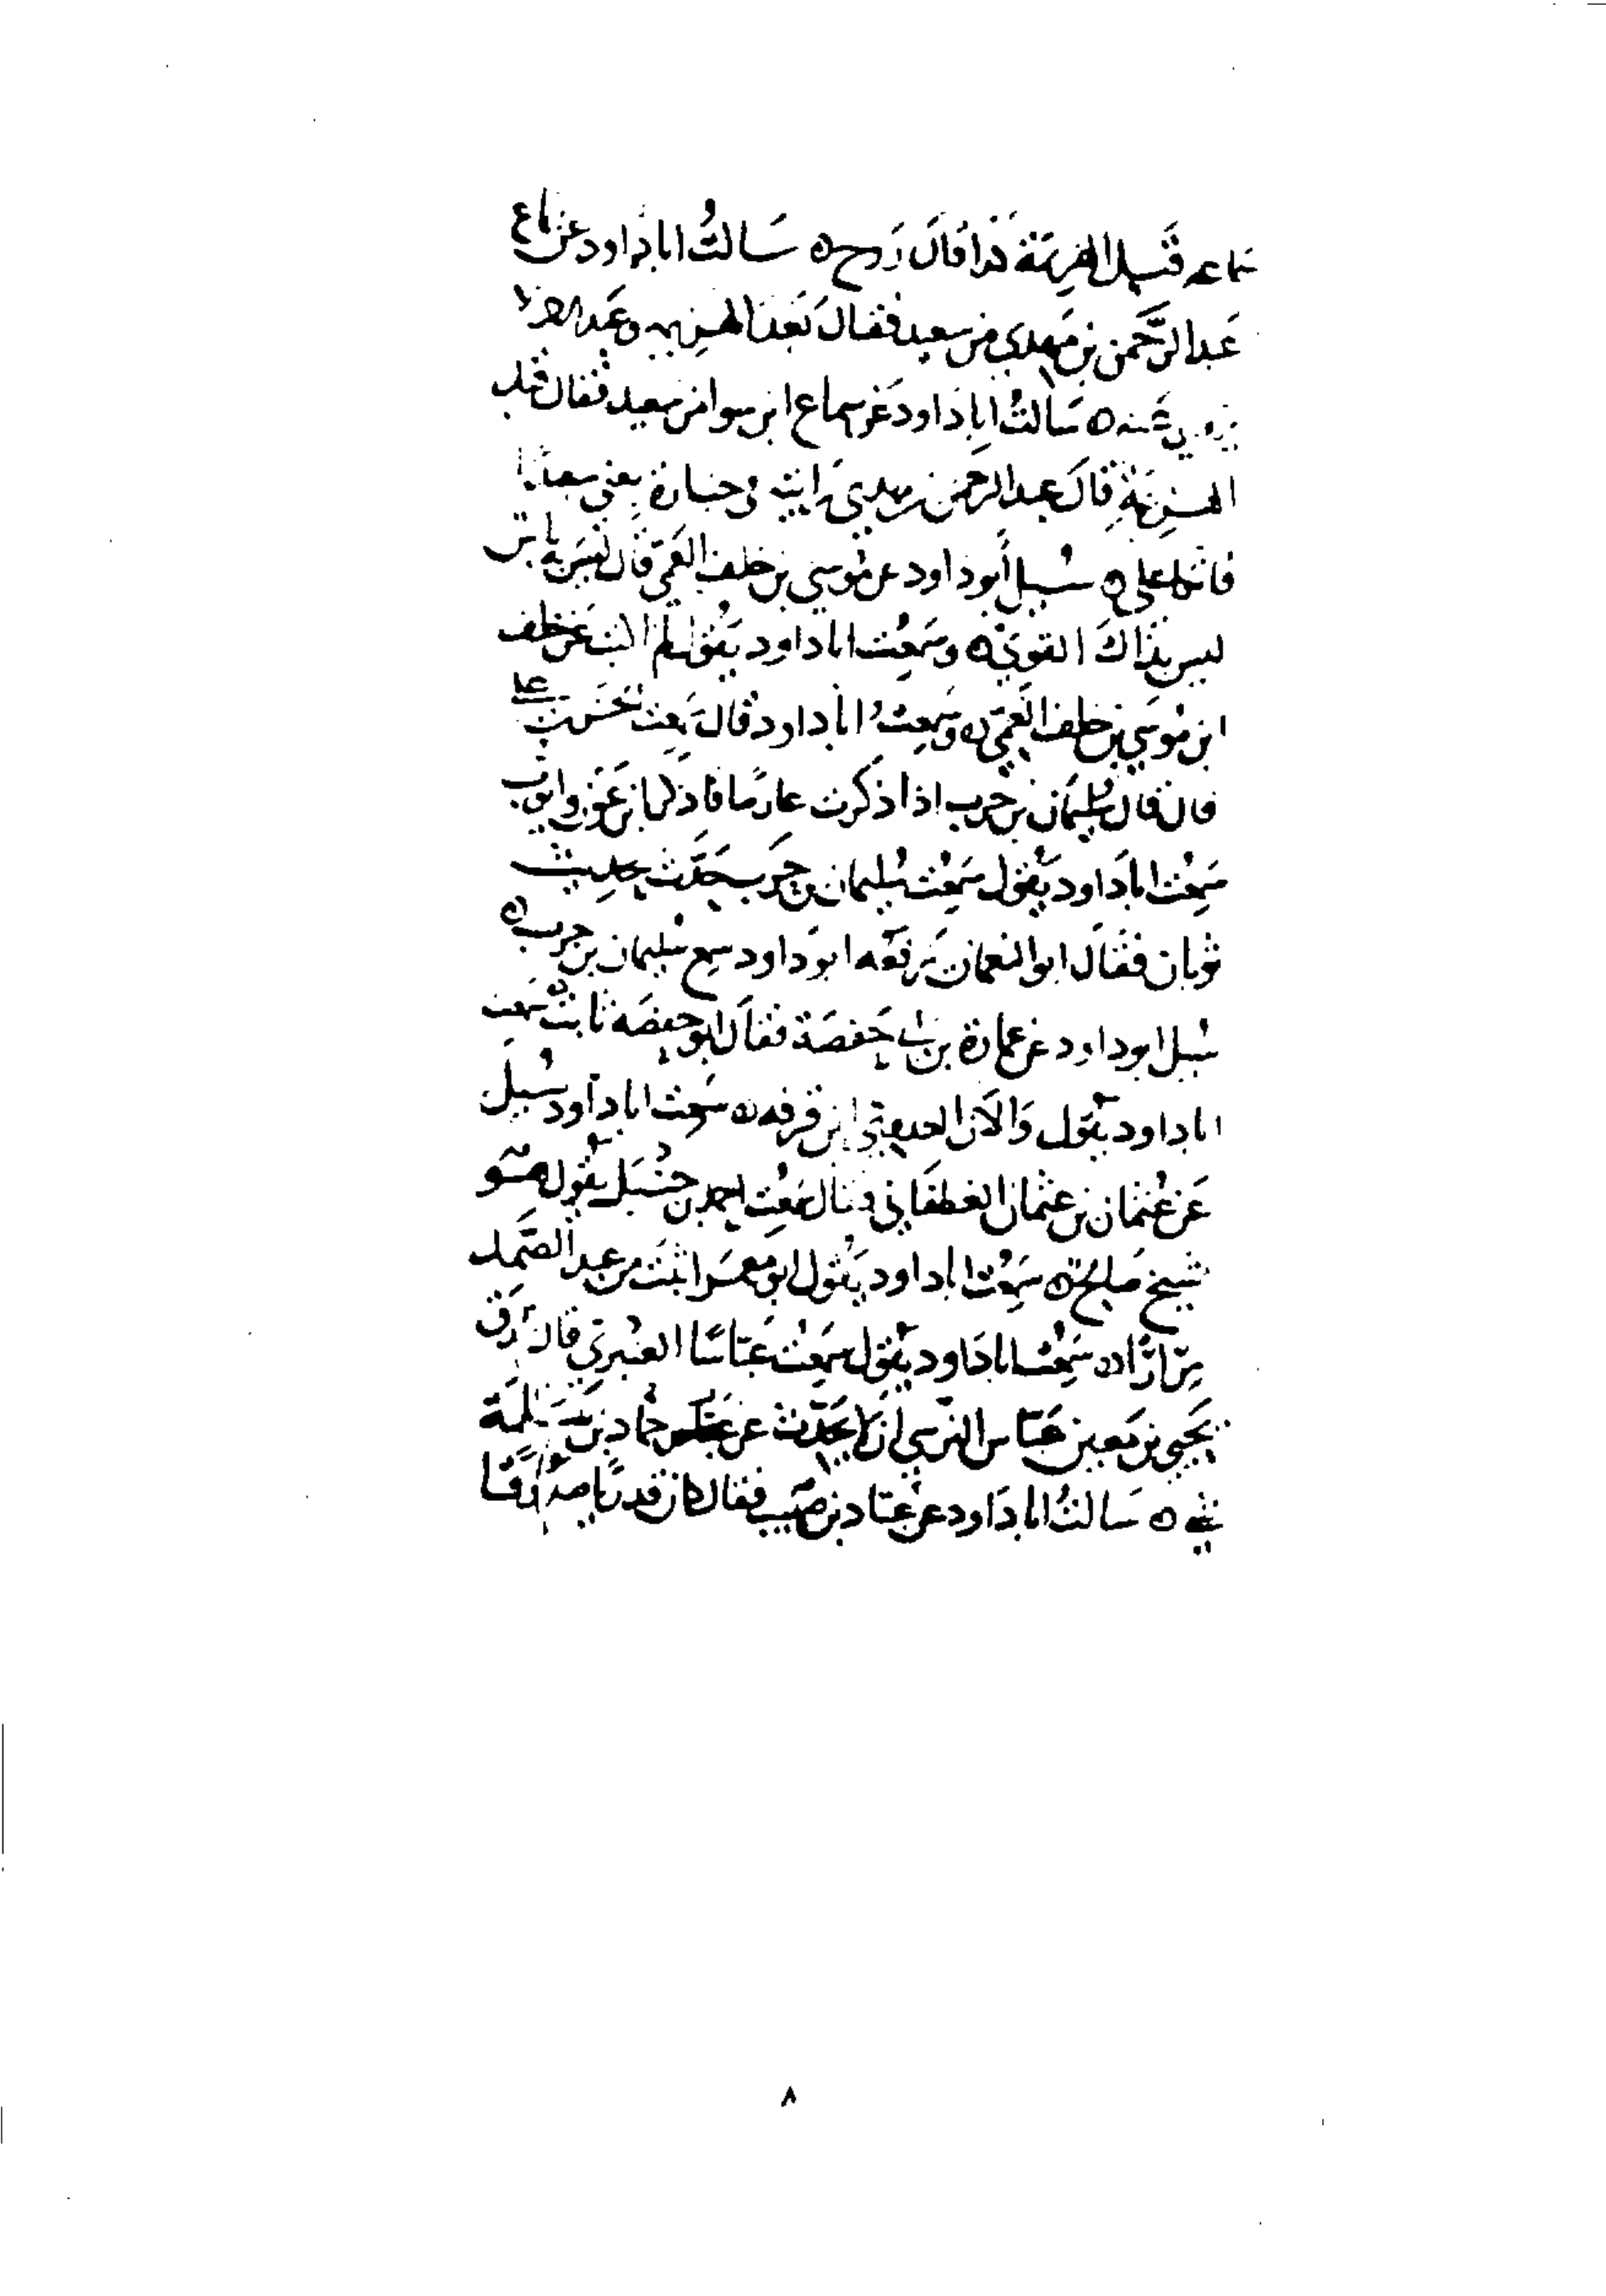 سماعه قبل الهزيمة كذا قال روح ه سَالتُ ابا داود عن سماع
عَبد الرَّحمن بن مَهدي من سعيد فقال بَعد الهزيمه
سَالتُ ابا داود عَن سماع ابن سوا من سعيد فقال قبل
الهزيمَةِ قال عبد الرحمن بن مهدي رَايته في جنازة يعني سعيدًا
سُيل أبو داود عن مُوسى بن خلف العَمّي قال ليسَ به باس
ليس بذاكَ القوي ه وسَمعت ابا داود يَقول لم اكتب عَن خلف
ابن مُوسَى بن خلف العَمّي ه وسَمعتُ ابا داود قال سَمعت حَسَن بن علي
قال قال سُليمَان بن حَرب اذا ذكرت عارمًا فاذكر ابن عَون وايوب
سَمعْت ابا دَاود يَقول سَمعْت سُليمان بن حَرب يحَدّث بحديث
ثوبان فقَال ابو النعمان يَرفعَه ابو دَاود سمع سُليمان بن حرب ه
سُيل ابو داود عن عمارة بن ابي حَفصَة فقال ابو حفصَه ثابت ه سَمعت
ابا داود يَقول وَالآن ابن قرفه ه سَمعت ابا داود سُيل
عَن عُثمان بن عثمان الغطفَاني فقال سَمعْت احمد بن حَنبَل يَقول هُو
شيخ صَالح ه سَمعْت ابا داود يَقول ابو مَعمَر اثبَت من عبد الصَّمد
مِرَارًا ه سَمعْت ابا دَاود يَقول سَمعْت عَبّاسًا العنبري قال
يَحيى بن مَعين عَبّاس النرسي ان لا يحَدّث عن حَمّاد بن سَلمَة
ه سَالتُ ابا دَاود عن عبّاد بن صُهَيب فقال كان قدريًا صَدُوقا
٨